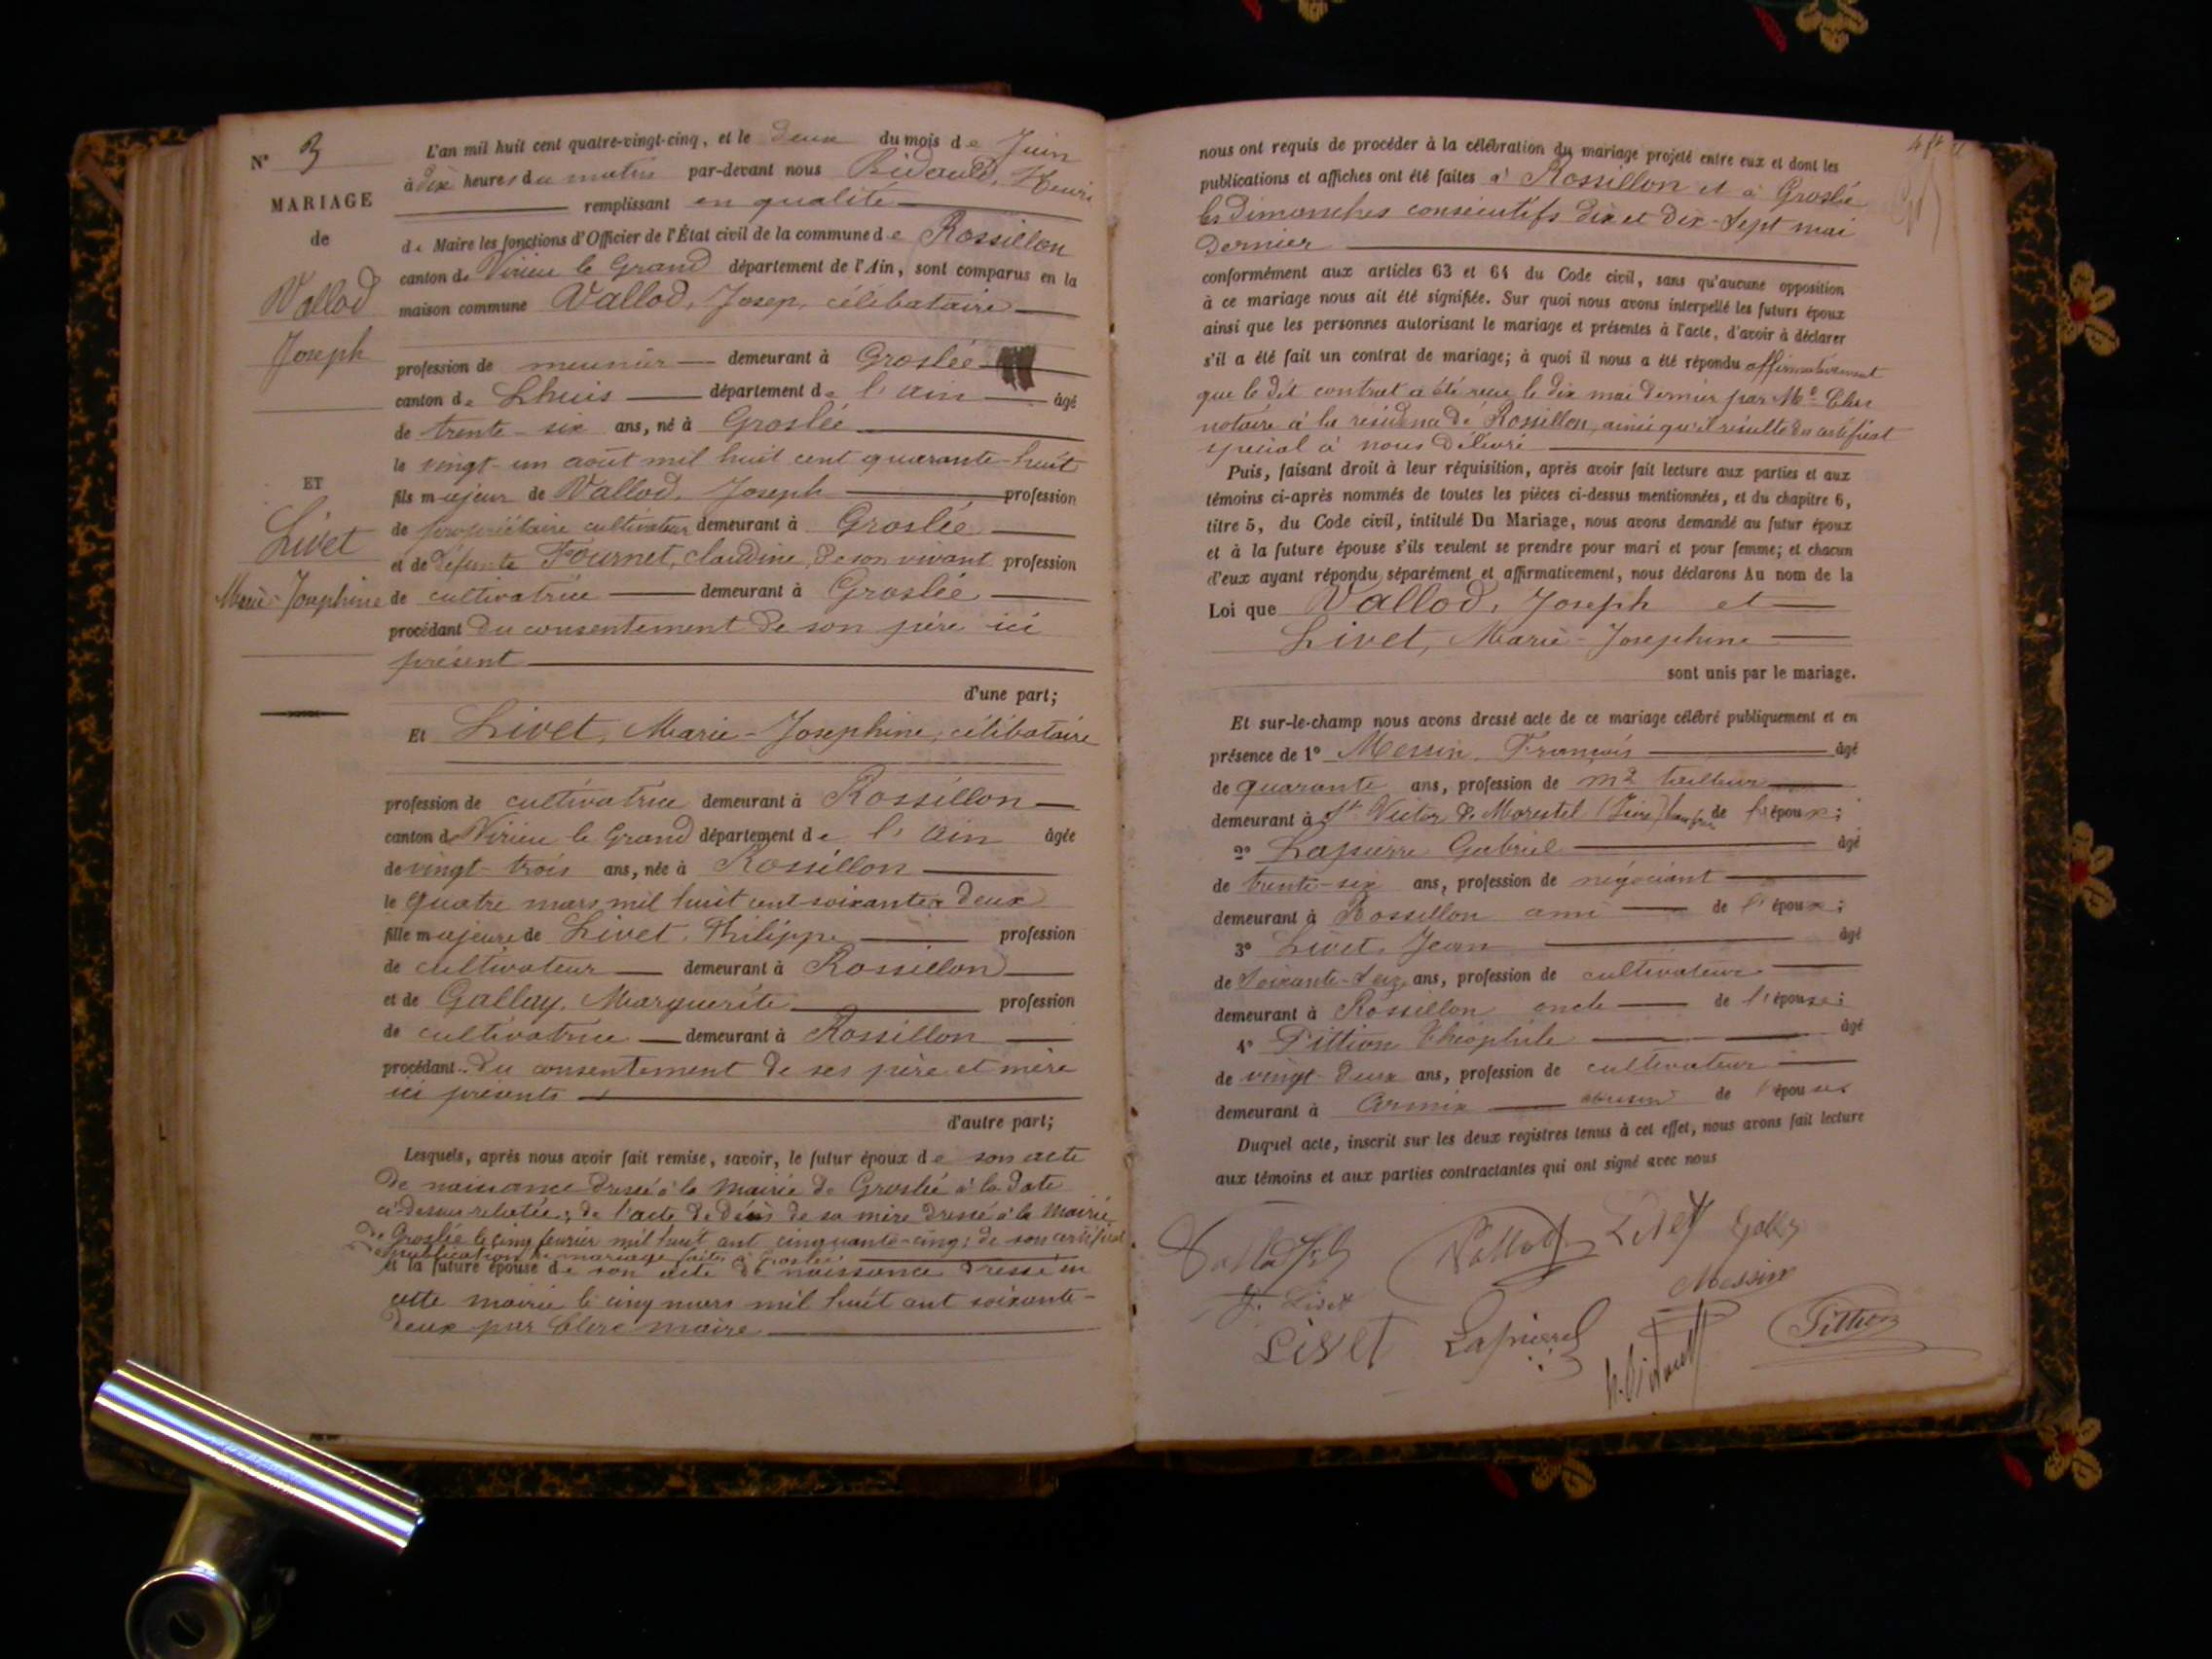 N° 3
MARIAGE
de
Vallod
Joseph
ET
Livet
Marie-Josephine
L'an mil huit cent quatre-vingt-cinq, et le deux du mois de Juin
à dix heures du matin par-devant nous Bidault, Henri
remplissant en qualité
de Maire les fonctions d'Officier de l'État civil de la commune de Rossillon
canton de Virieu le Grand département de l'Ain, sont comparus en la
maison commune Vallod, Josep, célibataire
profession de meunier demeurant à Groslée
canton de Lhuis département de l'Ain âgé
de trente-six ans, né à Groslée
le vingt-un août mil huit cent quarante-huit
fils majeur de Vallod, Joseph profession
de propriétaire cultivateur demeurant à Groslée
et de défunte Fournet, Claudine, de son vivant profession
de cultivatrice demeurant à Groslée
procédant du consentement de son père ici
présent
d'une part;
Et Livet, Marie-Josephine, célibataire
profession de cultivatrice demeurant à Rossillon
canton de Virieu le Grand département de l'Ain âgée
de vingt-trois ans, née à Rossillon
le quatre mars mil huit cent soixante deux
fille majeure de Livet, Philippe profession
de cultivateur demeurant à Rossillon
et de Gallay, Marguerite profession
de cultivatrice demeurant à Rossillon
procédant du consentement de ses père et mère
ici présents
d'autre part;
Lesquels, après nous avoir fait remise, savoir, le futur époux de son acte
de naissance dressé à la Mairie de Groslée à la date
ci-dessus relatée; de l'acte de décès de sa mère dressé à la Mairie
de Groslée le cinq février mil huit cent cinquante-cinq; de son certificat
de publication de mariage faites à Groslée
et la future épouse de son acte de naissance dressé en
cette mairie le cinq mars mil huit cent soixante-
deux par Clerc maire
nous ont requis de procéder à la célébration du mariage projeté entre eux et dont les
publications et affiches ont été faites à Rossillon et à Groslée
les Dimanches consécutifs dix et dix-sept mai
dernier
conformément aux articles 63 et 64 du Code civil, sans qu'aucune opposition
à ce mariage nous ait été signifiée. Sur quoi nous avons interpellé les futurs époux
ainsi que les personnes autorisant le mariage et présentes à l'acte, d'avoir à déclarer
s'il a été fait un contrat de mariage; à quoi il nous a été répondu affirmativement
que le dit contrat a été reçu le dix mai dernier par Me
notaire à la résidence de Rossillon, ainsi qu'il résulte du certificat
spécial à nous délivré
Puis, faisant droit à leur réquisition, après avoir fait lecture aux parties et aux
témoins ci-après nommés de toutes les pièces ci-dessus mentionnées, et du chapitre 6,
titre 5, du Code civil, intitulé Du Mariage, nous avons demandé au futur époux
et à la future épouse s'ils veulent se prendre pour mari et pour femme; et chacun
d'eux ayant répondu séparément et affirmativement, nous déclarons Au nom de la
Loi que Vallod, Joseph et
Livet, Marie-Josephine
sont unis par le mariage.
Et sur-le-champ nous avons dressé acte de ce mariage célébré publiquement et en
présence de 1° Messin, François âgé
de quarante ans, profession de md tailleur
demeurant à St Victor de Morestel (Isère) beau frère de l'époux;
2° Lapierre Gabriel âgé
de trente-six ans, profession de négociant
demeurant à Rossillon ami de l'époux;
3° Livet, Jean âgé
de Soixante-Seize ans, profession de cultivateur
demeurant à Rossillon oncle de l'épouse;
4° Pittion Théophile âgé
de vingt-deux ans, profession de cultivateur
demeurant à Armix cousin de l'épouse
Duquel acte, inscrit sur les deux registres tenus à cet effet, nous avons fait lecture
aux témoins et aux parties contractantes qui ont signé avec nous
Vallod Livet
Messin
Livet
Livet Lapierre Pittion
h. Bidault